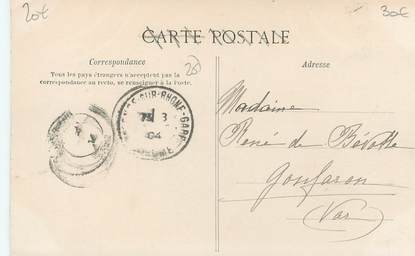 20€
30€
CARTE POSTALE
Correspondance
Tous les pays étrangers n'acceptent pas la
correspondance au recto, se renseigner à la Poste.
Adresse
20
SUR-RHONE-GARE
3
04
DROME
Madame
René de
Gonfaron
(Var)